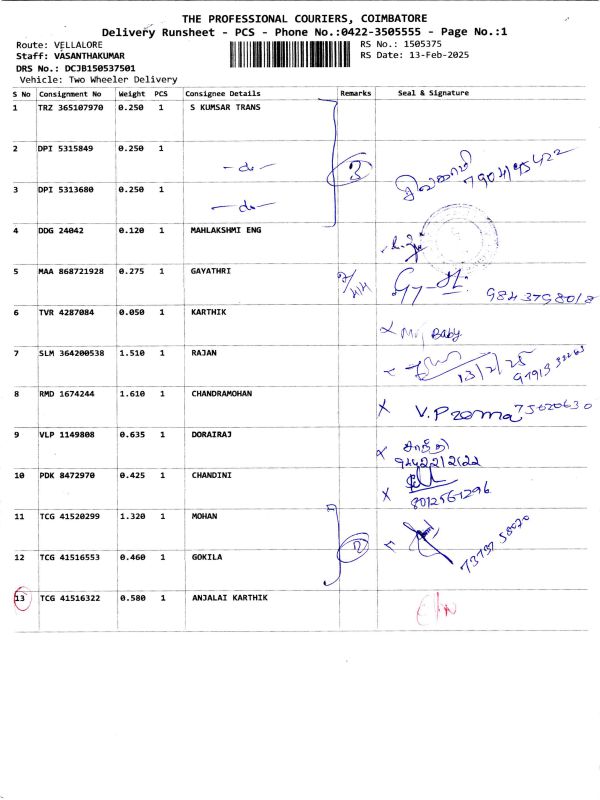 THE PROFESSIONAL COURIERS, COIMBATORE
Delivery Runsheet - PCS - Phone No.:0422-3505555 - Page No.:1
Route: VELLALORE
RS No.: 1505375
Staff: VASANTHAKUMAR
RS Date: 13-Feb-2025
DRS No.: DCJB150537501
Vehicle: Two Wheeler Delivery
S No Consignment No Weight PCS Consignee Details Remarks Seal & Signature
1 TRZ 365107970 0.250 1 S KUMSAR TRANS
2 DPI 5315849 0.250 1
- do - 3
3 DPI 5313680 0.250 1
- do -
4 DDG 24042 0.120 1 MAHLAKSHMI ENG
5 MAA 868721928 0.275 1 GAYATHRI
6 TVR 4287084 0.050 1 KARTHIK
Baby
7 SLM 364200538 1.510 1 RAJAN
13/2/25
8 RMD 1674244 1.610 1 CHANDRAMOHAN
V.Prema
9 VLP 1149808 0.635 1 DORAIRAJ
சாந்தி
10 PDK 8472970 0.425 1 CHANDINI
8012561296
11 TCG 41520299 1.320 1 MOHAN
2
12 TCG 41516553 0.460 1 GOKILA
13 TCG 41516322 0.580 1 ANJALAI KARTHIK